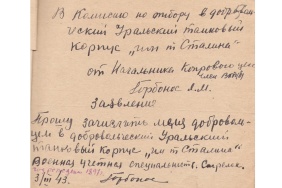 В Комиссию по отбору в добровольче
ский Уральский танковый
корпус "им т Сталина"
от Начальника Копрового цеха
член ВКП(б)
Горбонос Я.М.
Заявление
Прошу зачислить меня доброволь
цем в добровольческий Уральский
танковый корпус "им т Сталина"
Военная учетная специальность. Стрелок.
3/III 43. Горбонос